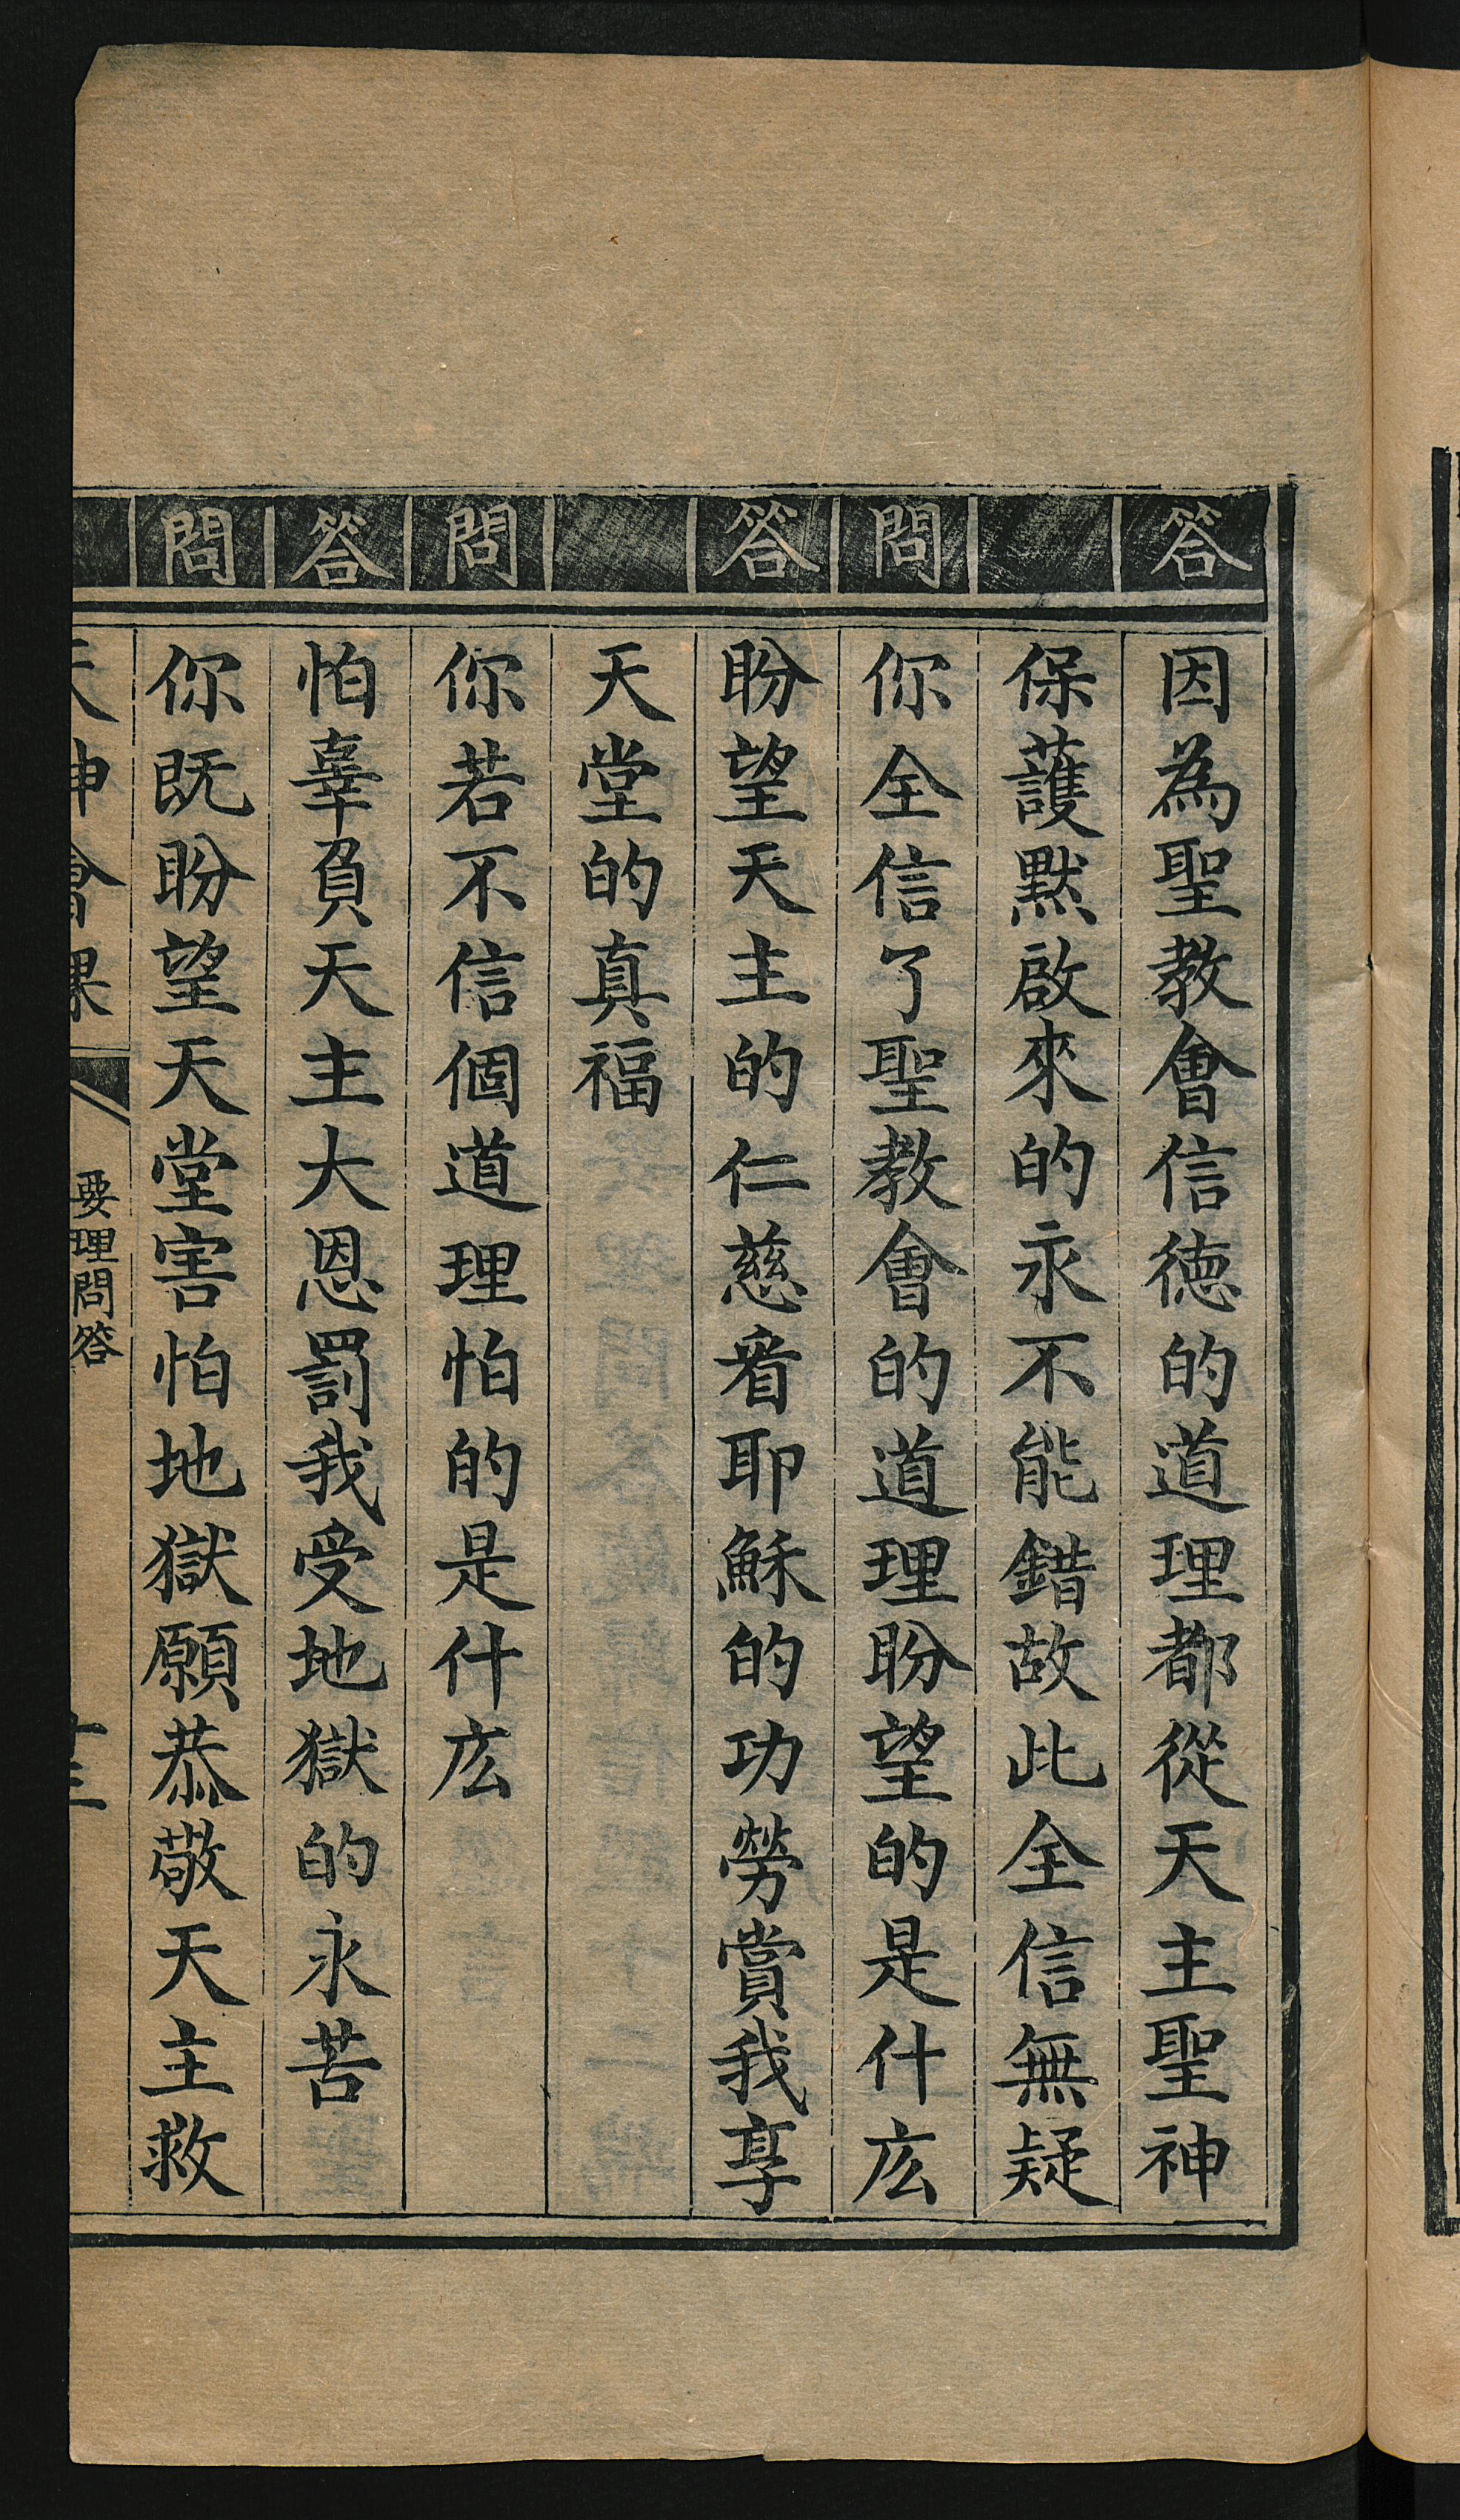 答
因為聖教會信徳的道理都從天主聖神
保護黙啟來的永不能錯故此全信無疑
問
你全信了聖教會的道理盼望的是什庅
答
盼望天主的仁慈看耶穌的功勞賞我享
天堂的真福
問
你若不信個道理怕的是什庅
答
怕辜負天主大恩罰我受地獄的永苦
問
你既盼望天堂害怕地獄願恭敬天主救
天神會課
要理問答